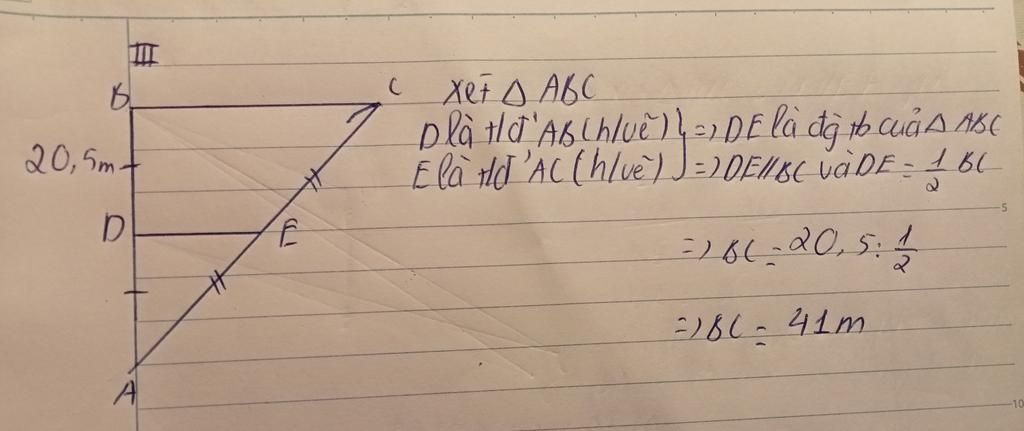 III
B
C
20,5m
D
E
A
xét Δ ABC
D là tđ' AB (h/vẽ) } => DE là đg tb của Δ ABC
E là tđ' AC (h/vẽ) } => DE // BC và DE = 1/2 BC
=> BC = 20,5 : 1/2
=> BC = 41m
5
10